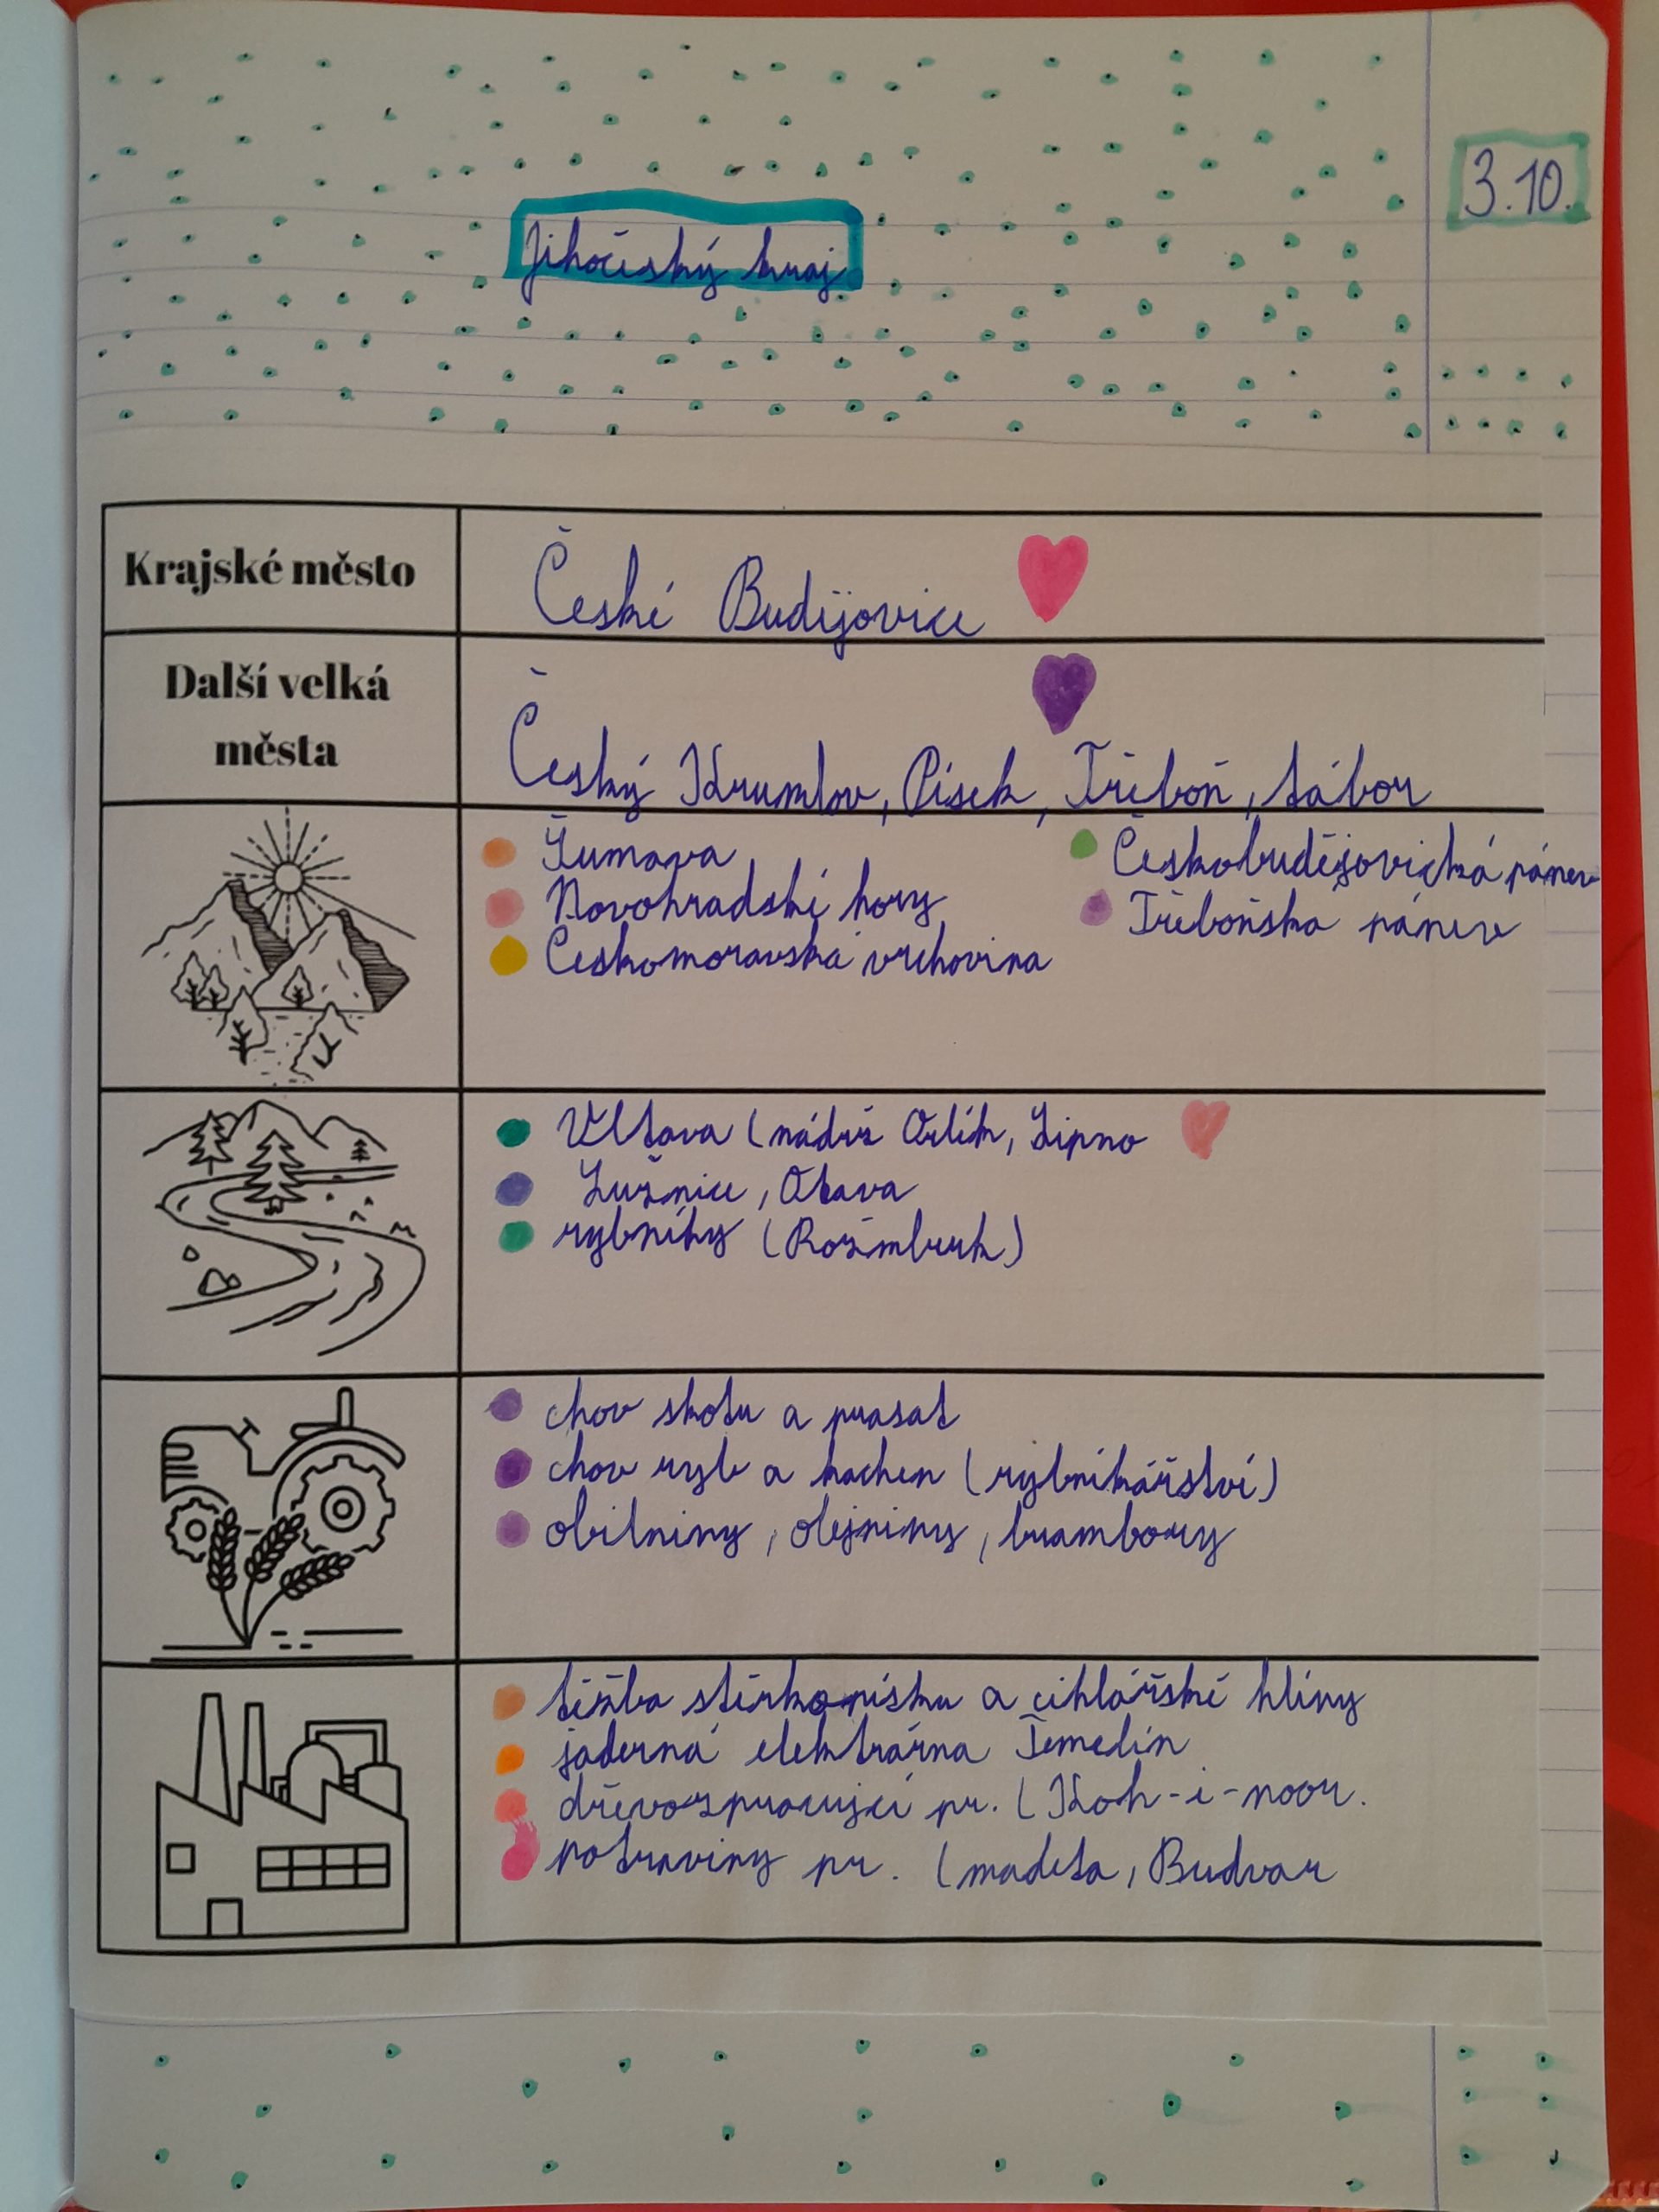 3.10.
Jihočeský kraj
Krajské město
České Budějovice
Další velká
města
Český Krumlov, Písek, Třeboň, tábor
Šumava
Novohradské hory
Českomoravská vrchovina
Českobudějovická pánev
Třeboňska pánev
Vltava (nádrž Orlík, Lipno
Lužnice, Otava
rybníky (Rožmberk)
chov skotu a prasat
chov ryb a kachen (rybníkářství)
obilniny, olejniny, brambory
těžba štěrkopísku a cihlářské hlíny
jaderná elektrárna Temelín
dřevozpracující pr. (Koh-i-noor.
potraviny pr. (madeta, Budvar